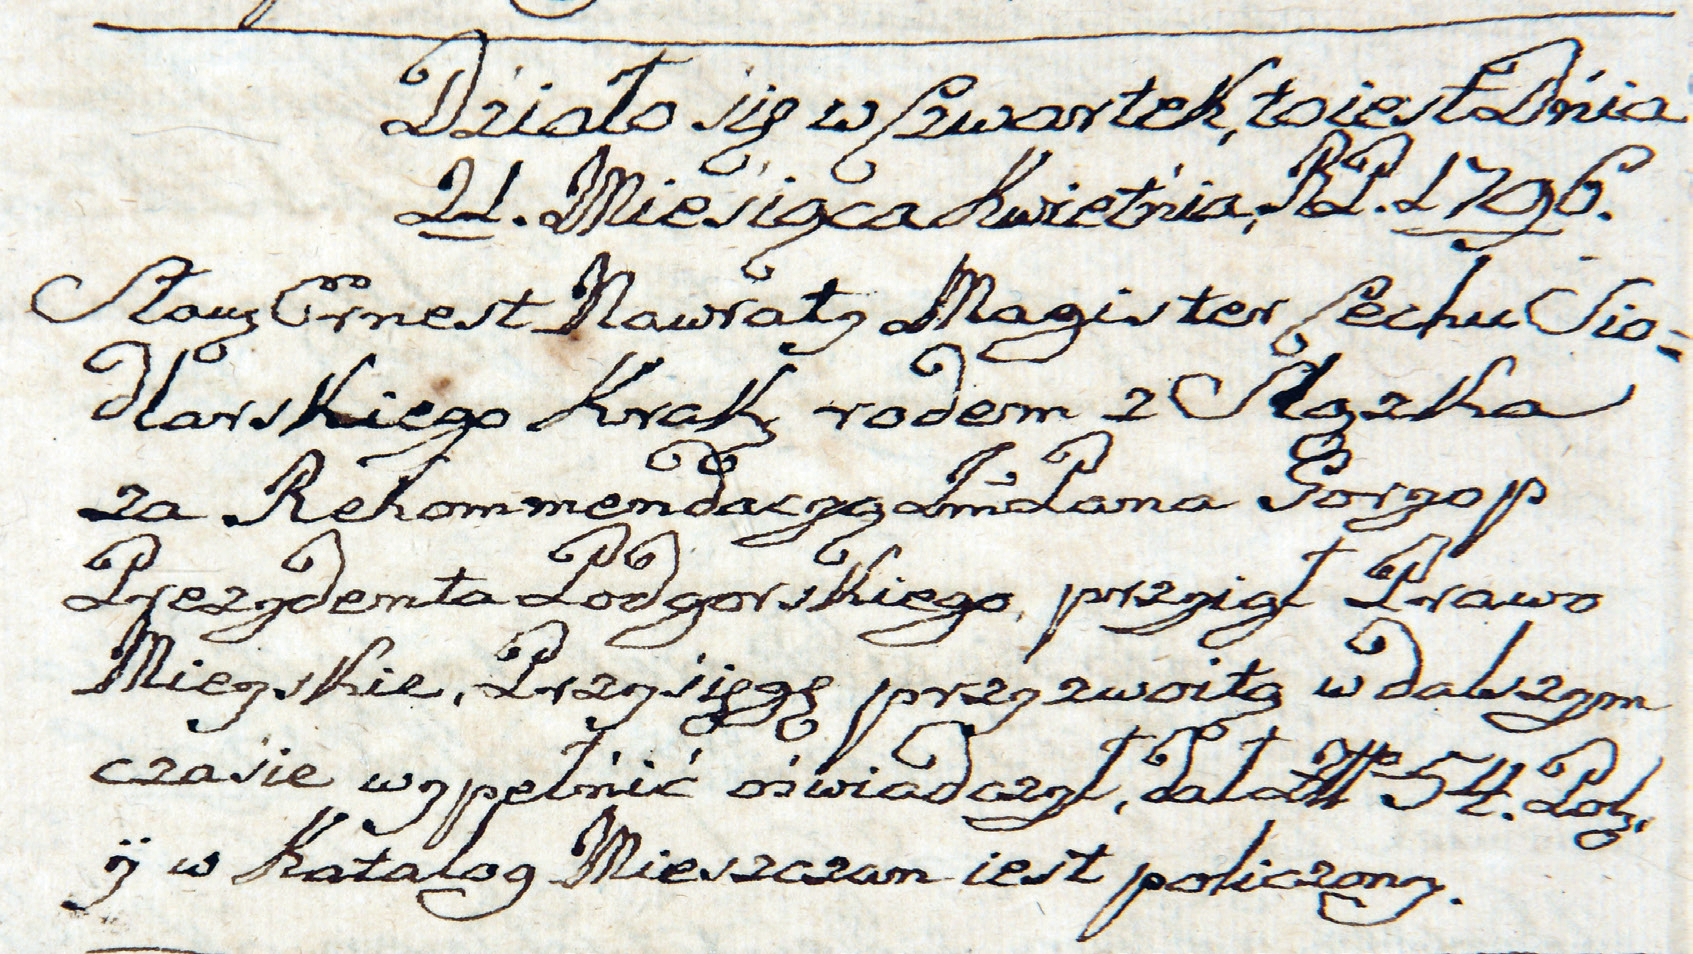 Działo się w Czwartek, to iest Dnia
21. Miesiąca Kwietnia, R.P. 1796.
Sławę Ernest Nawraty Magister Cechu Sio=
dlarskiego Krak: rodem z Slązka
za Rekommendacyą Jm̃ Pana Gorzop
Prezydenta Podgorskiego, przyiął Prawo
Mieyskie, Przysięgę przyzwoitą w dalszym
czasie wypełnić oświadczył, dał 54. Pol:
ÿ w Katalog Mieszczan iest policzony.